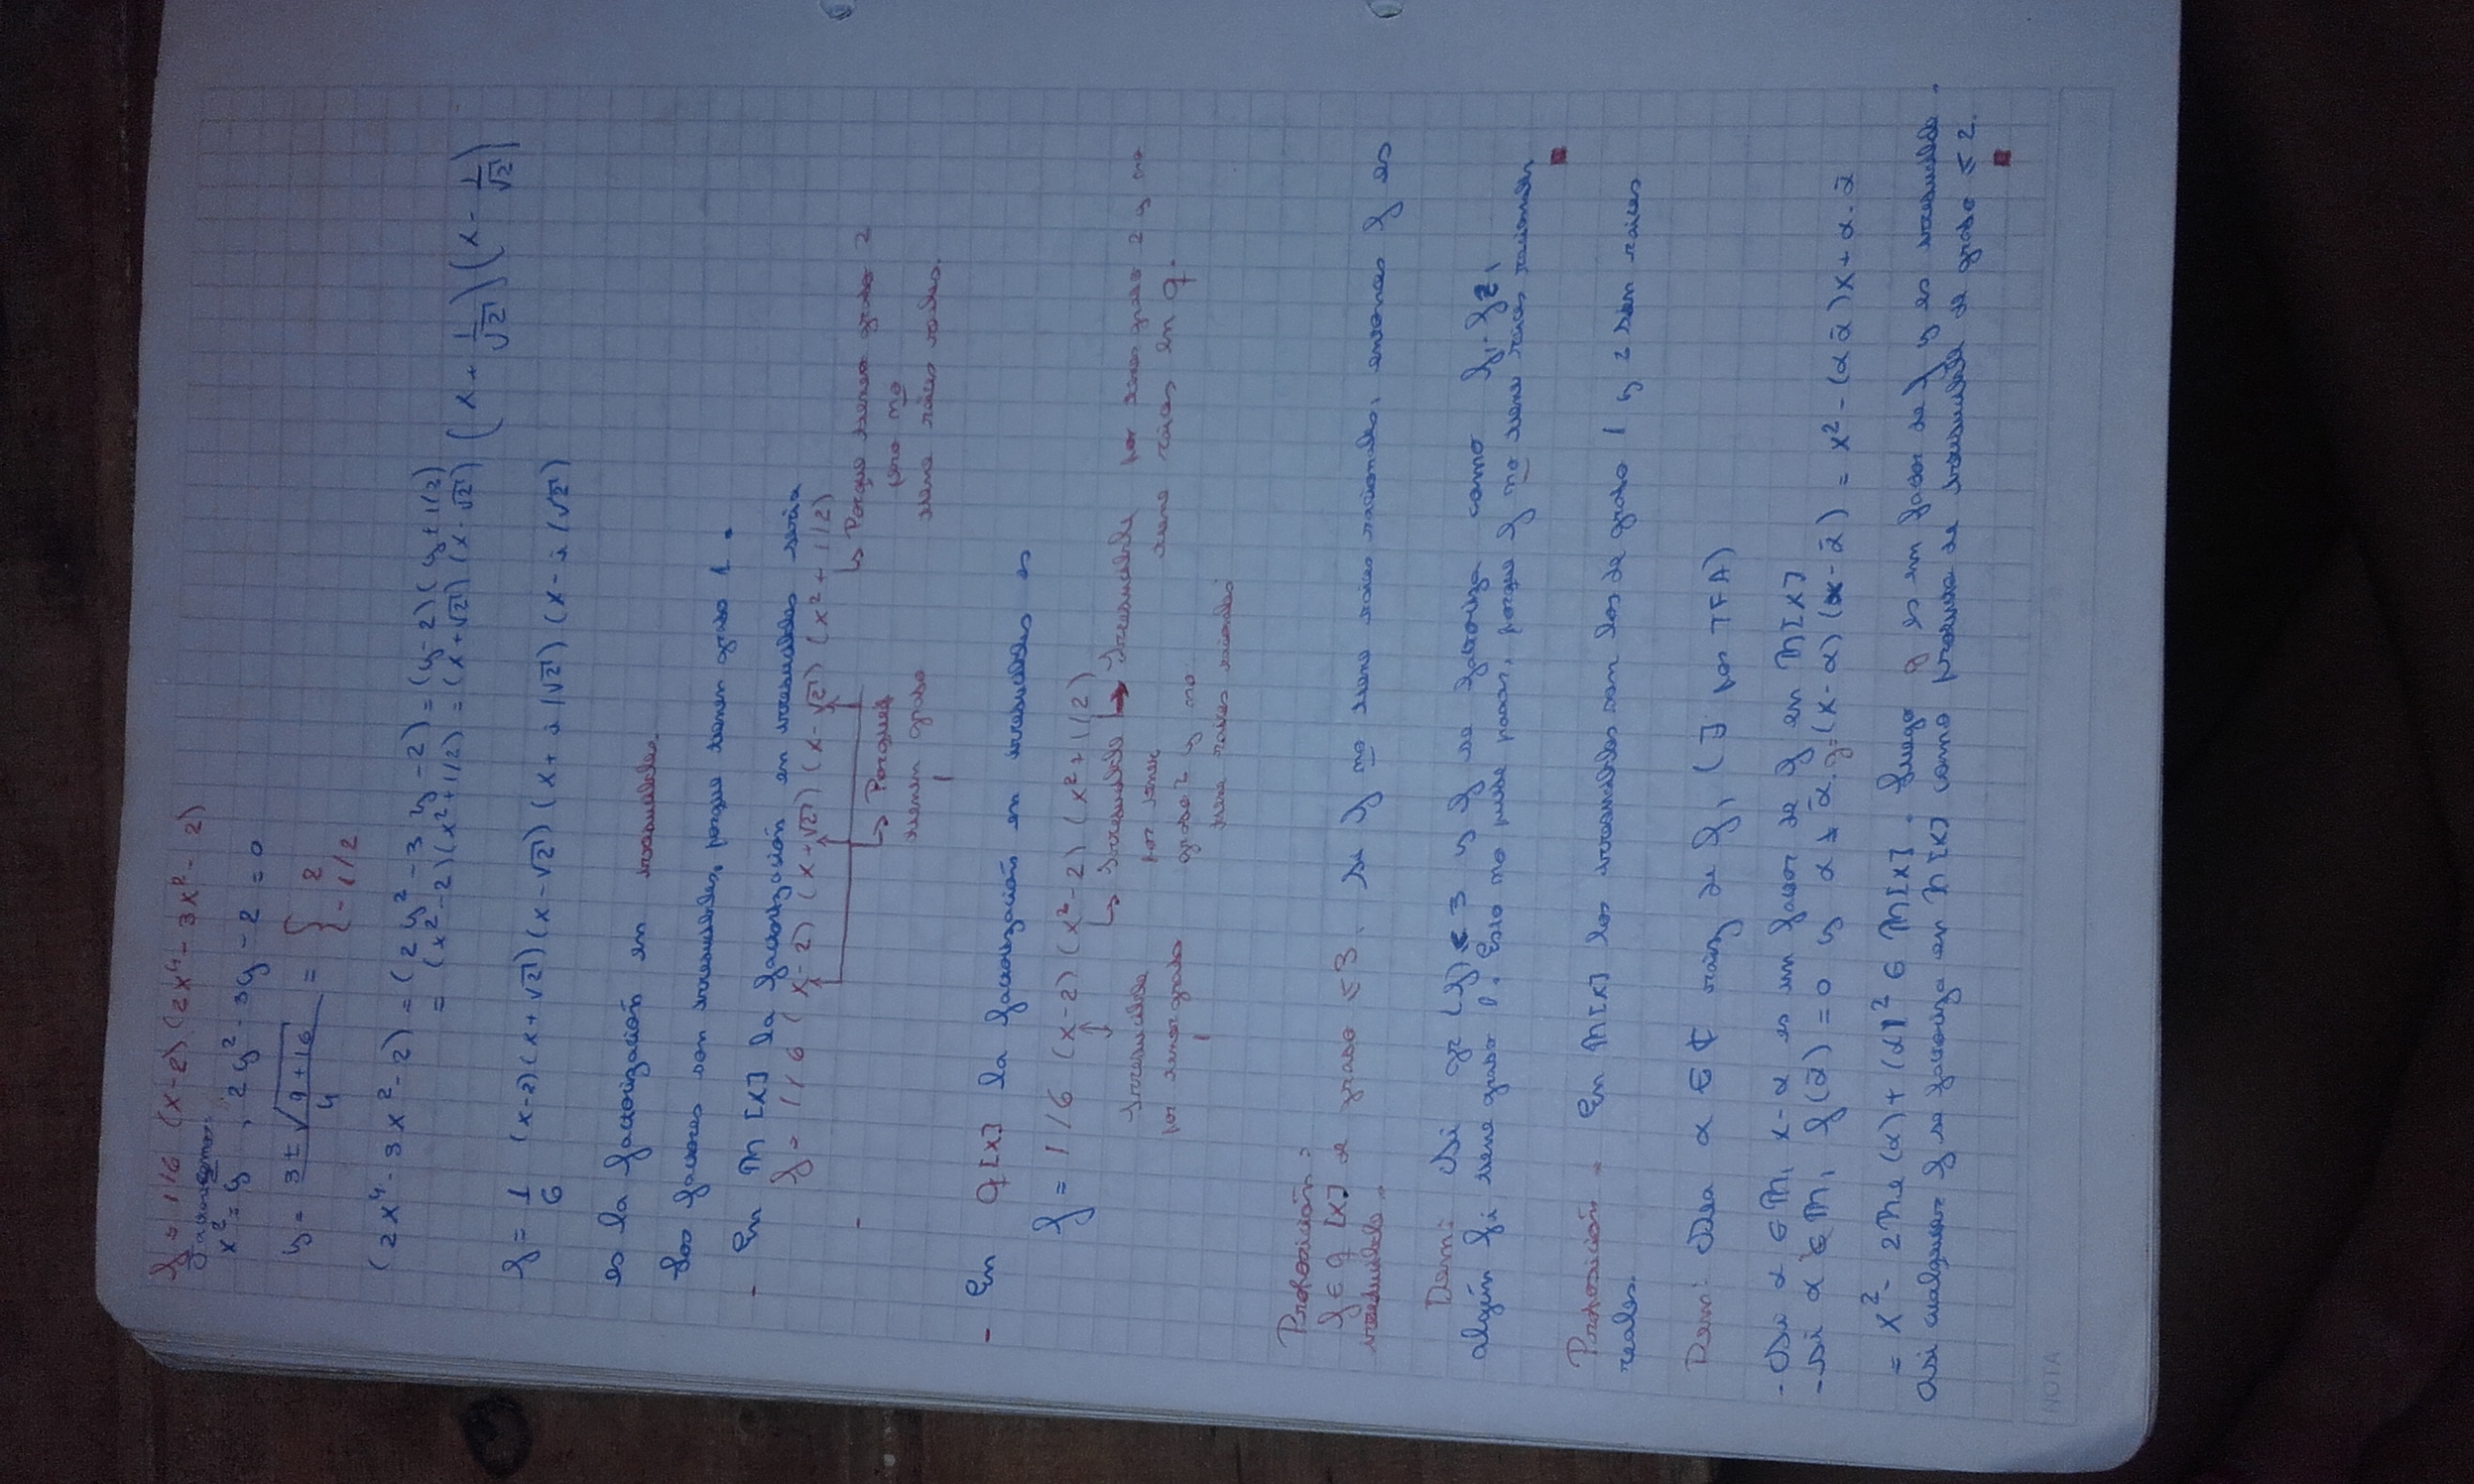 f = 1/6 (x-2) (2x⁴ - 3x² - 2)
Factorizamos:
x² = y , 2y² - 3y - 2 = 0
y = 3 ± √9+16 / 4 = { 2
- 1/2
(2x⁴ - 3x² - 2) = (2y² - 3y - 2) = (y-2)(y+1/2)
= (x²-2)(x²+1/2) = (x+√2)(x-√2) (x + 1/√2)(x - 1/√2)
f = 1/6 (x-2)(x+√2)(x-√2)(x+i/√2)(x-i/√2)
es la factorización en irreducibles.
Los factores son irreducibles, porque tienen grado 1.
- En ℝ[x] la factorización en irreducibles sería
f = 1/6 (x-2) (x+√2) (x-√2) (x²+1/2)
↳ Porque tienen grado 1
↳ Porque tiene grado 2
pero no
tiene raíces reales.
- En Q[x] la factorización en irreducibles es
f = 1/6 (x-2) (x²-2) (x²+1/2)
Irreducible
por tener grado
1
↳ Irreducible
por tener
grado 2 y no
tiene raíces racionales
↳ Irreducible por tener grado 2 y no
tiene raíces en Q.
Proposición:
f ∈ Q[x] de grado ≤ 3. Si f no tiene raíces racionales, entonces f es
irreducible.
Dem: Si gr(f) ≤ 3 y f se factoriza como f₁·f₂,
algún fi tiene grado 1. Esto no puede pasar, porque f no tiene raíces racionales
Proposición - En ℝ[x] los irreducibles son los de grado 1 y 2 sin raíces
reales.
Dem: Sea α ∈ ℂ raíz de f, (∃ por TFA)
- Si α ∈ ℝ, x-α es un factor de f en ℝ[x]
- Si α ∈ ℝ, f(ᾱ) = 0 y α ≠ ᾱ. g=(x-α)(x-ᾱ) = x² - (α ᾱ)x + α·ᾱ
= x² - 2Re(α) + |α|² ∈ ℝ[x]. Luego g es un factor de f y es irreducible.
Así cualquier f se factoriza en ℝ[x] como producto de irreducible de grado ≤ 2.
NOTA